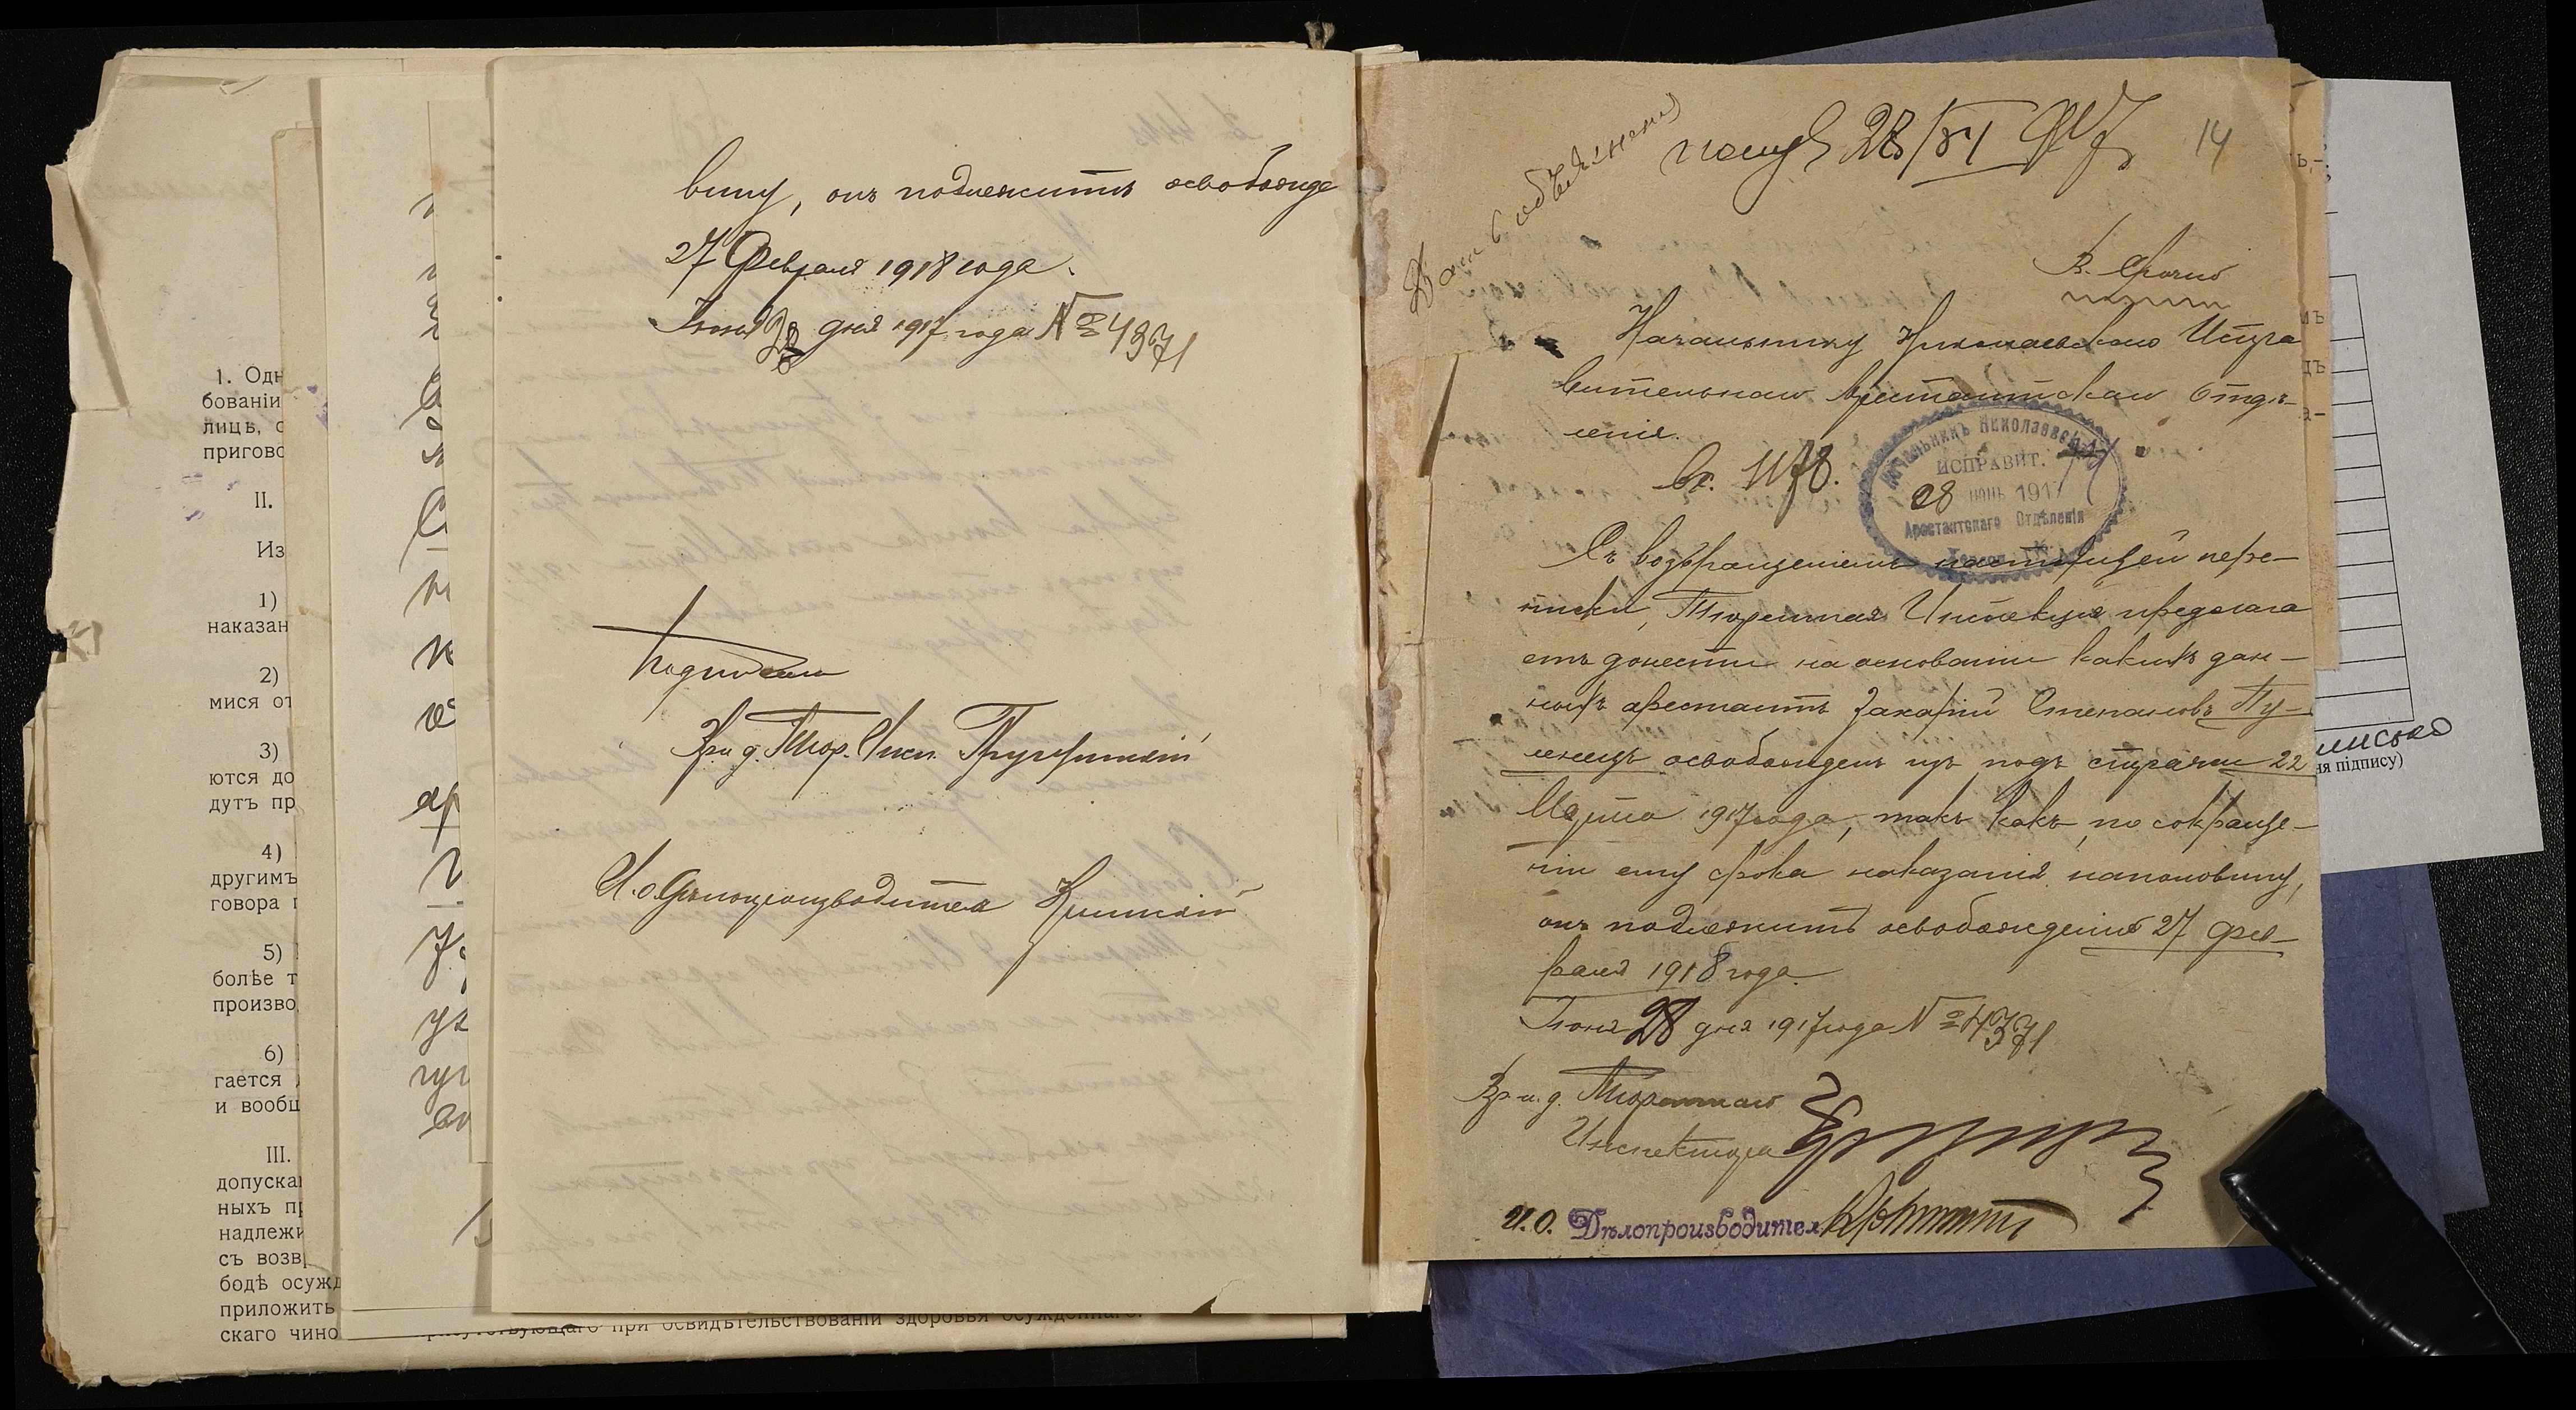 1. Одн
бованіи
лицъ, с
пригово
II.
Из
1)
наказан
2)
мися от
3)
ются до
дутъ пр
4)
другимъ
говора
5)
болѣе т
произво
6)
гается
и вообщ
III.
допуска
ныхъ пр
надлежи
съ возв
бодѣ осужд
приложить
скаго чино
присутствующаго при освидѣтельствованіи здоровья осужденнаго.
вину, онъ подлежитъ освобожде
27 Февраля 1918 года.
Іюня 28 дня 1917 года № 4371
Подписали
Вр. и. д. Тюр. Инсп.
И. о. Дѣлопроизводителя
получ 28/VI 917
14
В. Срочно
Начальнику Николаевскаго Испра
вительнаго Арестантскаго Отдѣ-
ленія.
Вх. 1178.
Начальникъ Николаевскаго
ИСПРАВИТ.
28 ІЮНЬ 1917
Арестантскаго Отдѣленія
Херсон.
Съ возвращеніемъ настоящей пере-
писки, Тюремная Инспекція предлага
етъ донести на основаніи какихъ дан-
ныхъ арестантъ Захарій Степановъ Пу-
ленецъ освобожденъ изъ подъ стражи 22
Марта 1917 года, такъ какъ, по сокраще-
ніи ему срока наказанія на половину,
онъ подлежитъ освобожденію 27 фев-
раля 1918 года.
Іюня 28 дня 1917 года № 4371
Вр. и. д. Тюремнаго
Инспектора
И. О. Дѣлопроизводител
ня підпису)